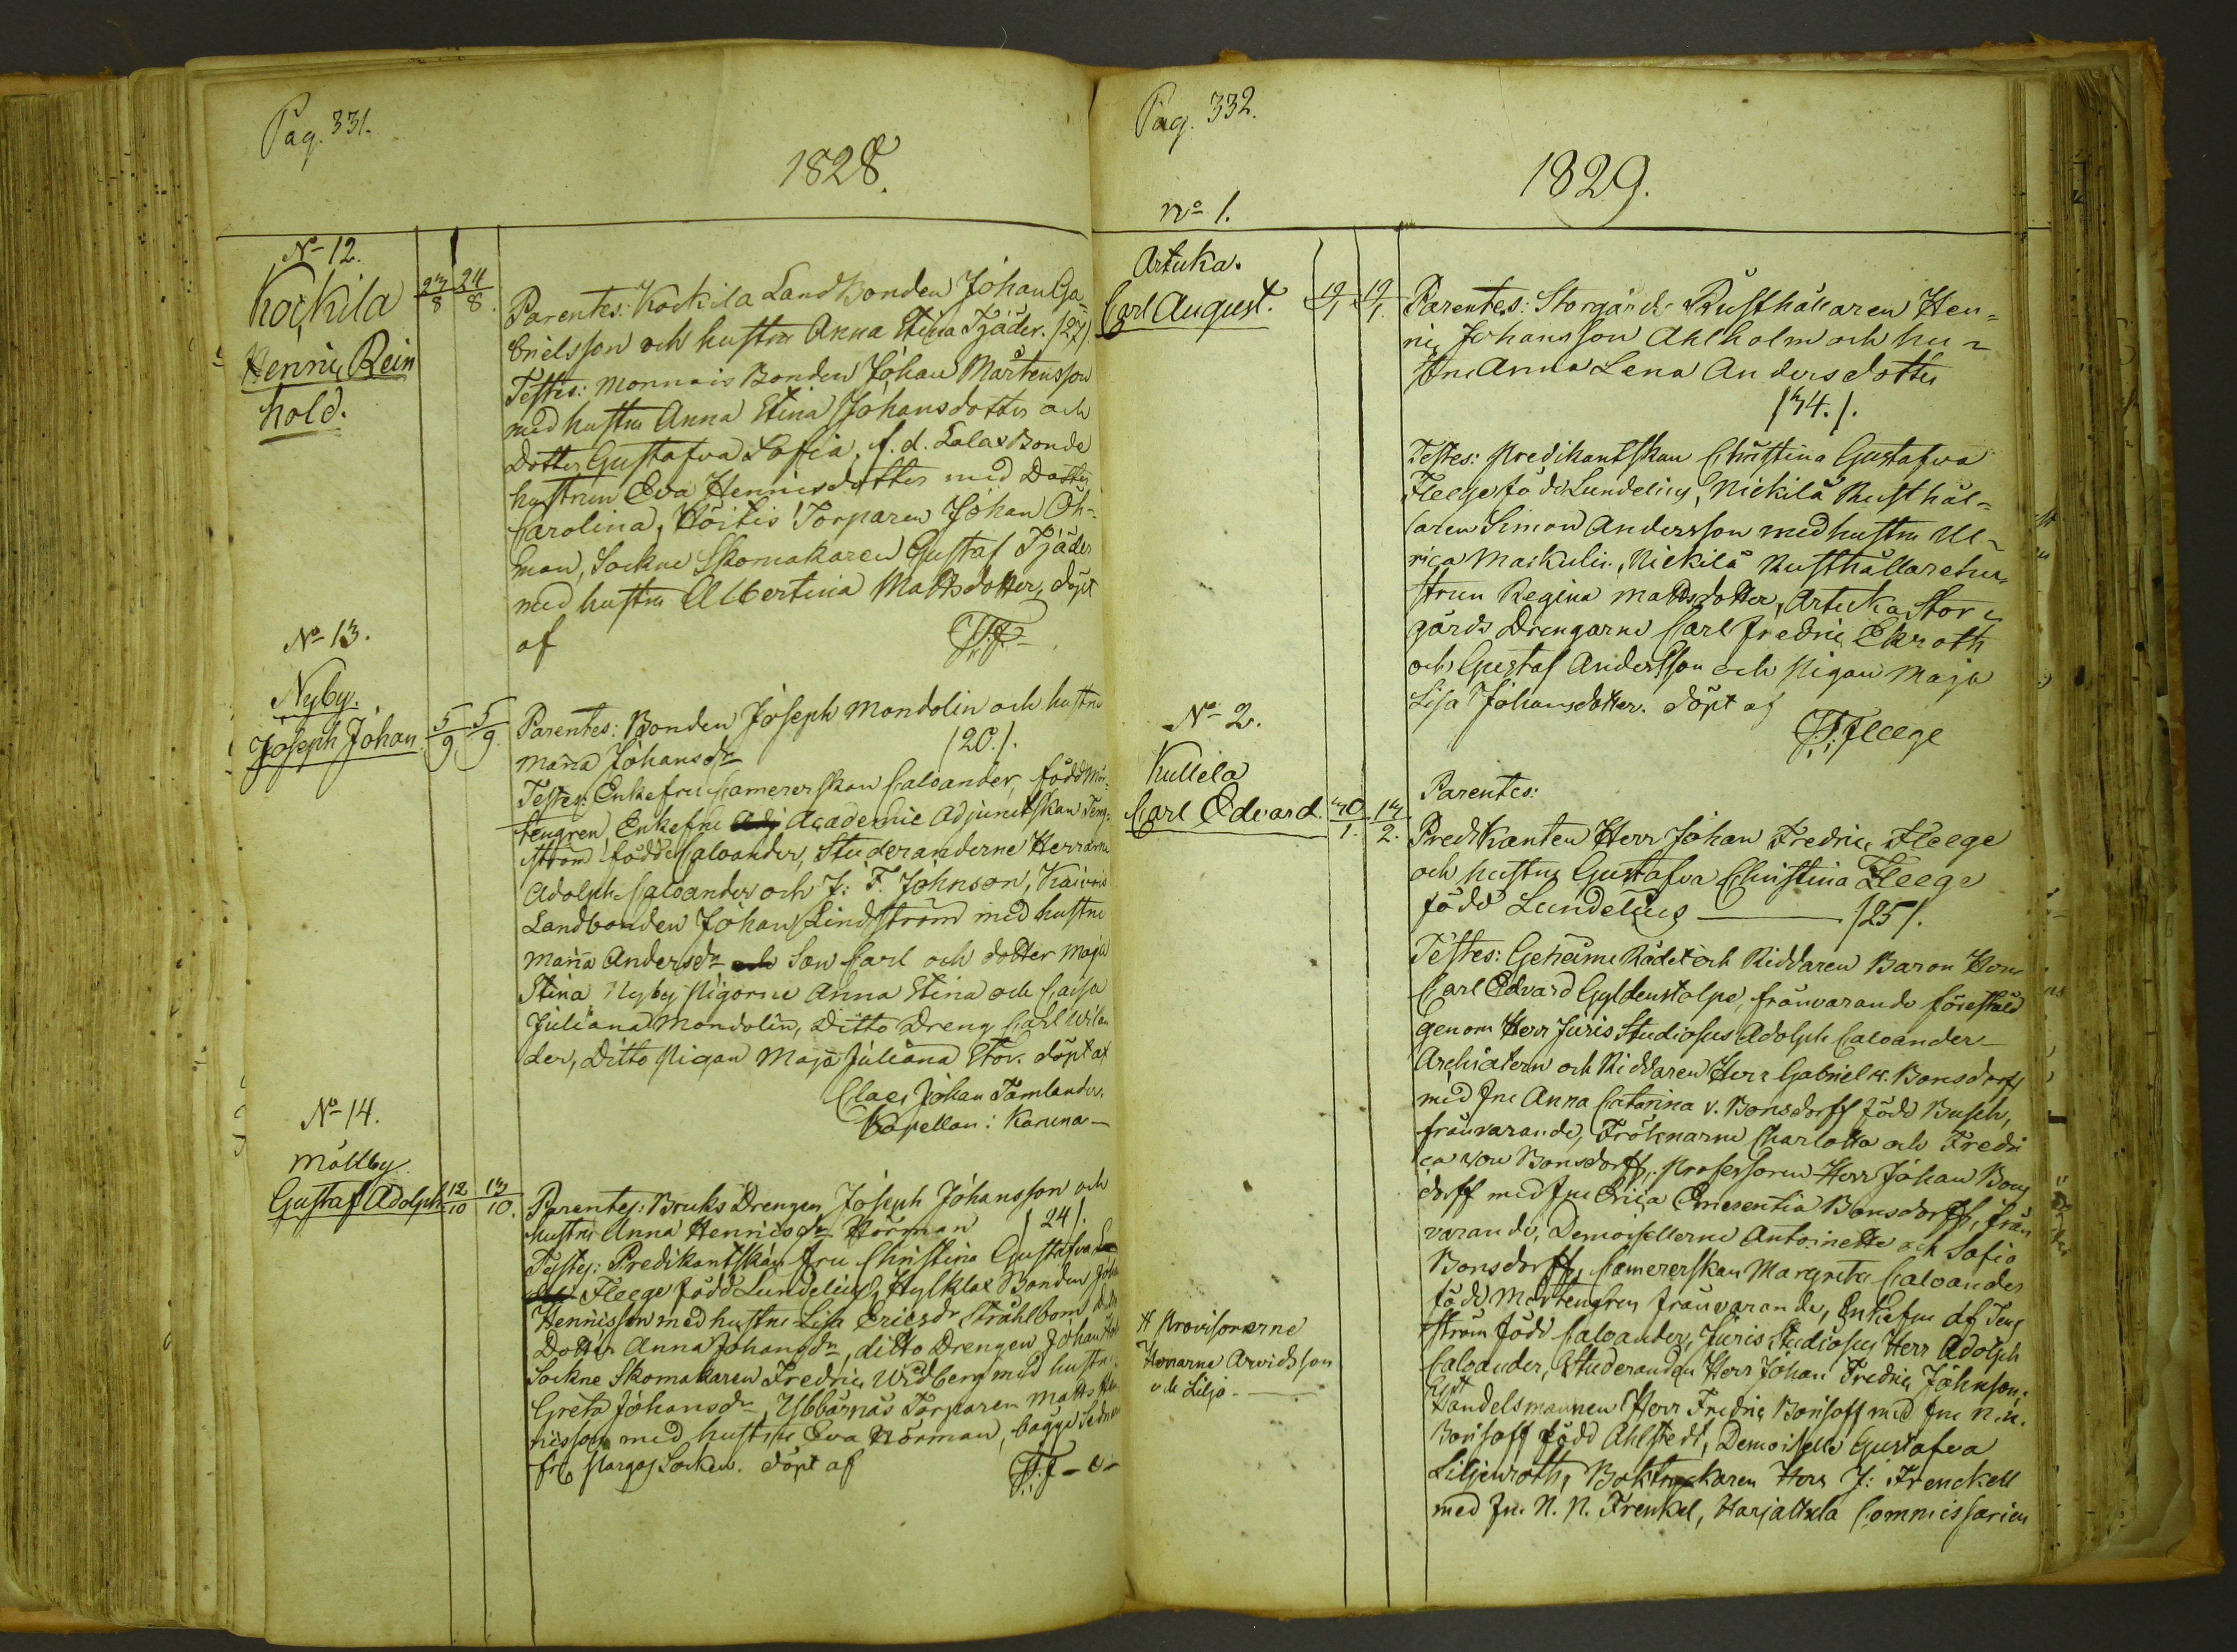 Pag. 331.
1828.
No 12.
Kockila
Henric Rein
hold.
23/8 24/8.
Parentes: Kockila LandBonden Johan Ga-
brielsson och hustru Anna Stina Tjäder. /27/.
Testes: Monnais Bonden Johan Mårtensson
med hustru Anna Stina Johansdotter och
Dotter Gustafva Sofia, f. d. Lalax Bonde
hustrun Eva Henricsdotter med Dotter
Carolina, Höitis Torparen Johan Öh-
man, Sockne Skomakaren Gustaf Tjäder
med hustru Albertina Mattsdotter, döpt
af
J. F. F-
No 13.
Nyby.
Joseph Johan
5/9 5/9.
Parentes: Bonden Joseph Mondolin och hustru
Maria Johansdr /20./.
Testes: Enkefru Camererskan Caloander, född Mår-
tengren, Enkefru Academie Adjunctskan Teng-
ström född Caloander, Studeranderne Herrarne
Adolph Caloander och J: F. Johnson, Kaivois
Landbonden Johan Lindström med hustru
Maria Andersdr Son Carl och dotter Maja
Stina Nyby Pigorne Anna Stina och Caisa
Juliana Mondolin, Ditto Dreng Carl Wilan
der, Ditto Pigan Maja Juliana Stor. döpt af
Claes Johan Tamlander.
Capellan i Karuna-
No 14.
Mållby.
Gustaf Adolph
12/10 13/10.
Parentes: Bruks Drengen Joseph Johansson och
hustru Anna Henricsdr Norrman /24/.
Testes: Predikantskan Fru Christina Gustafva
Fleege född Lundelius, Hylklax Bonden Joha
Henricsson med hustru Lisa Ericsdr Stråhlbom
Dotter Anna Johansdr, ditto Drengen Johan
Sockne Skomakaren Fredric Widberg med hustru
Greta Johansdr, Ybbärnäs Torparen Matts Hen
ricsson med hustru Eva Norrman, bägge Sednare
fr. Pargas Socken. döpt af
J. F. F-e-
Pag. 332.
1829.
No 1.
Artuka.
Carl August.
19/1 19/1.
Parentes: Storgårds Rusthållaren Hen-
ric Johansson Ahlholm och hu-
stru Anna Lena Andersdotter
/34./.
Testes: Predikantskan Christina Gustafva
Fleege född Lundelius, Nickilä Rusthål-
laren Simon Andersson med hustru Ul-
rica Markulin, Nickilä Rusthållarehu-
strun Regina Mattsdotter, Artuka Stor-
gårds Drengarne Carl Fredric Ekroth
och Gustaf Andersson och Pigan Maja
Lisa Johansdotter. döpt af
J. F. Fleege
No 2.
Kullela
Carl Edvard.
30/1. 13/2.
Parentes:
Predikanten Herr Johan Fredric Fleege
och hustru Gustafva Christina Fleege
född Lundelius /25/.
Testes: Geheime Rådet och Riddaren Baron Herr
Carl Edvard Gyldenstolpe, frånvarande förestäld
genom Herr Juris Studiosus Adolph Caloander-
Archiatern och Riddaren Herr Gabriel v. Bonsdorff
med Fru Anna Catarina v. Bonsdorff, född Busch,
frånvarande, Fröknarne Charlotta och Fredri
ca von Bonsdorff, Professoren Herr Johan Bons
dorff med Fru Erica Emerentia Bonsdorff, från
varande, Demoisellerne Antoinette och Sofia
Bonsdorff, Camererskan Margreta Caloander
född Mårtengren frånvarande, Enkefru af Teng
ström född Caloander, Juris Studiosus Herr Adolph
Caloander, Studeranden Herr Johan Fredric Johnson,
Handelsmannen Herr Fredric Borisoff med Fru N. N.
Borisoff född Ahlstedt, Demoiselle Gustafva
Liljenroth, Boktryckaren Herr J: Frenckell
med Fru N. N. Frenkel, Harjattala Commissarien
# Provisorerne
Herrarne Arvidsson
och Lilja.